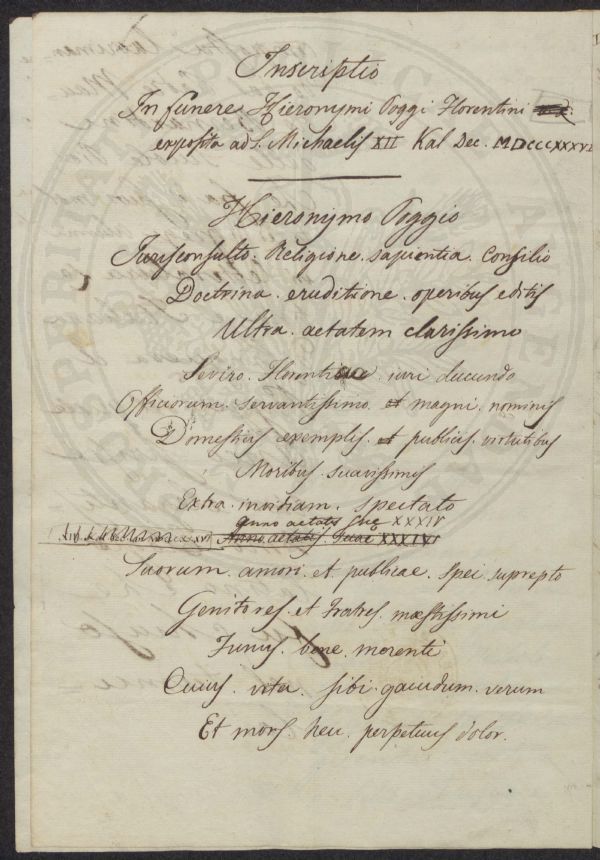 Inscriptio
In funere Hieronymi Poggi Florentini
exposita ad S. Michaelis XII Kal Dec. MDCCCXXXVI
Hieronymo Poggio
Jurisconsulto. Religione. sapientia. Consilio
Doctrina. eruditione. operibus editis
Ultra. aetatem clarissimo
Seviro. Florentiae. iuri dicundo
Officiorum. servantissimo. et magni. nominis
Domesticis exemplis. et publicis. virtutibus
Moribus. suavissimis
Extra. invidiam. spectato
anno aetatis suae XXXIV
Anno. aetatis. suae XXXIV
Suorum. amori. et. publicae. spei. suprepto
Genitores. et Fratres. mæstissimi
Funus. bene. merenti
Cuius. vita. sibi. gaudium. verum
Et mors. heu. perpetuus dolor.